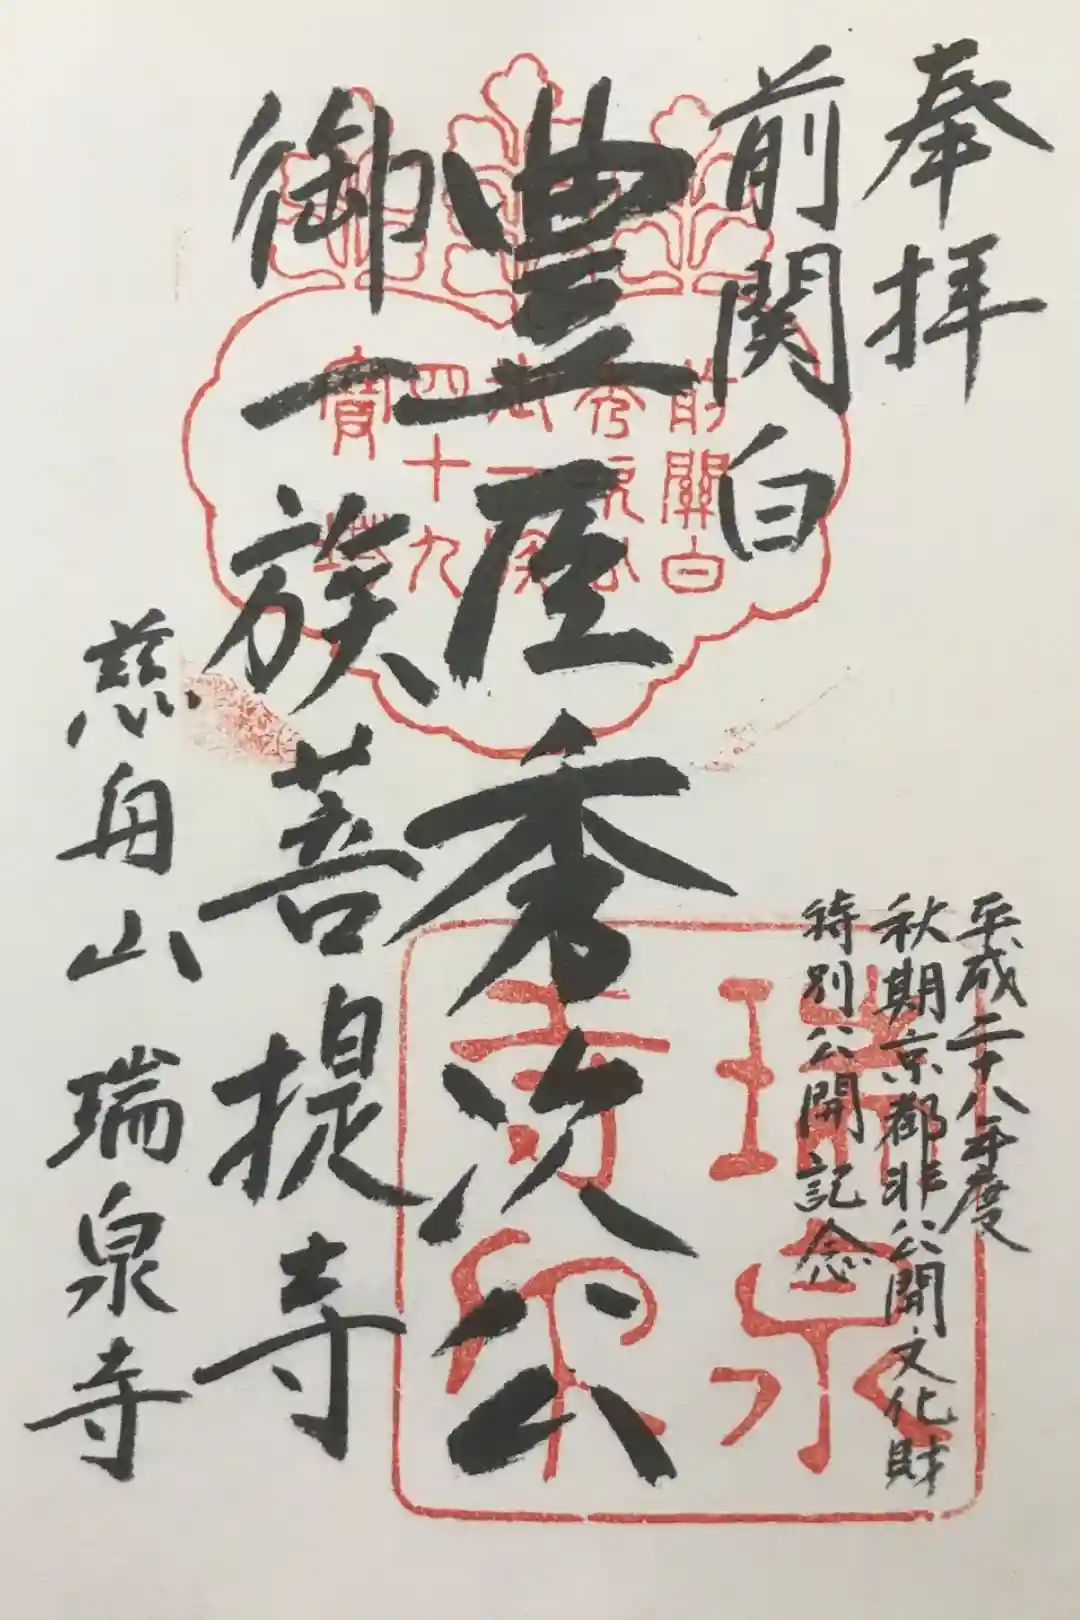 奉拝
前関白
豊臣秀次公
御一族菩提寺
慈舟山瑞泉寺
平成二十八年度
秋期京都非公開文化財
特別公開記念
前關白
秀次公
御一族
四十九
寶
瑞泉
寺印